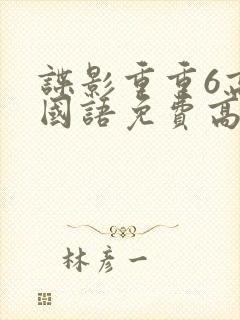 諜影重重6高
國語免費高
林彥一